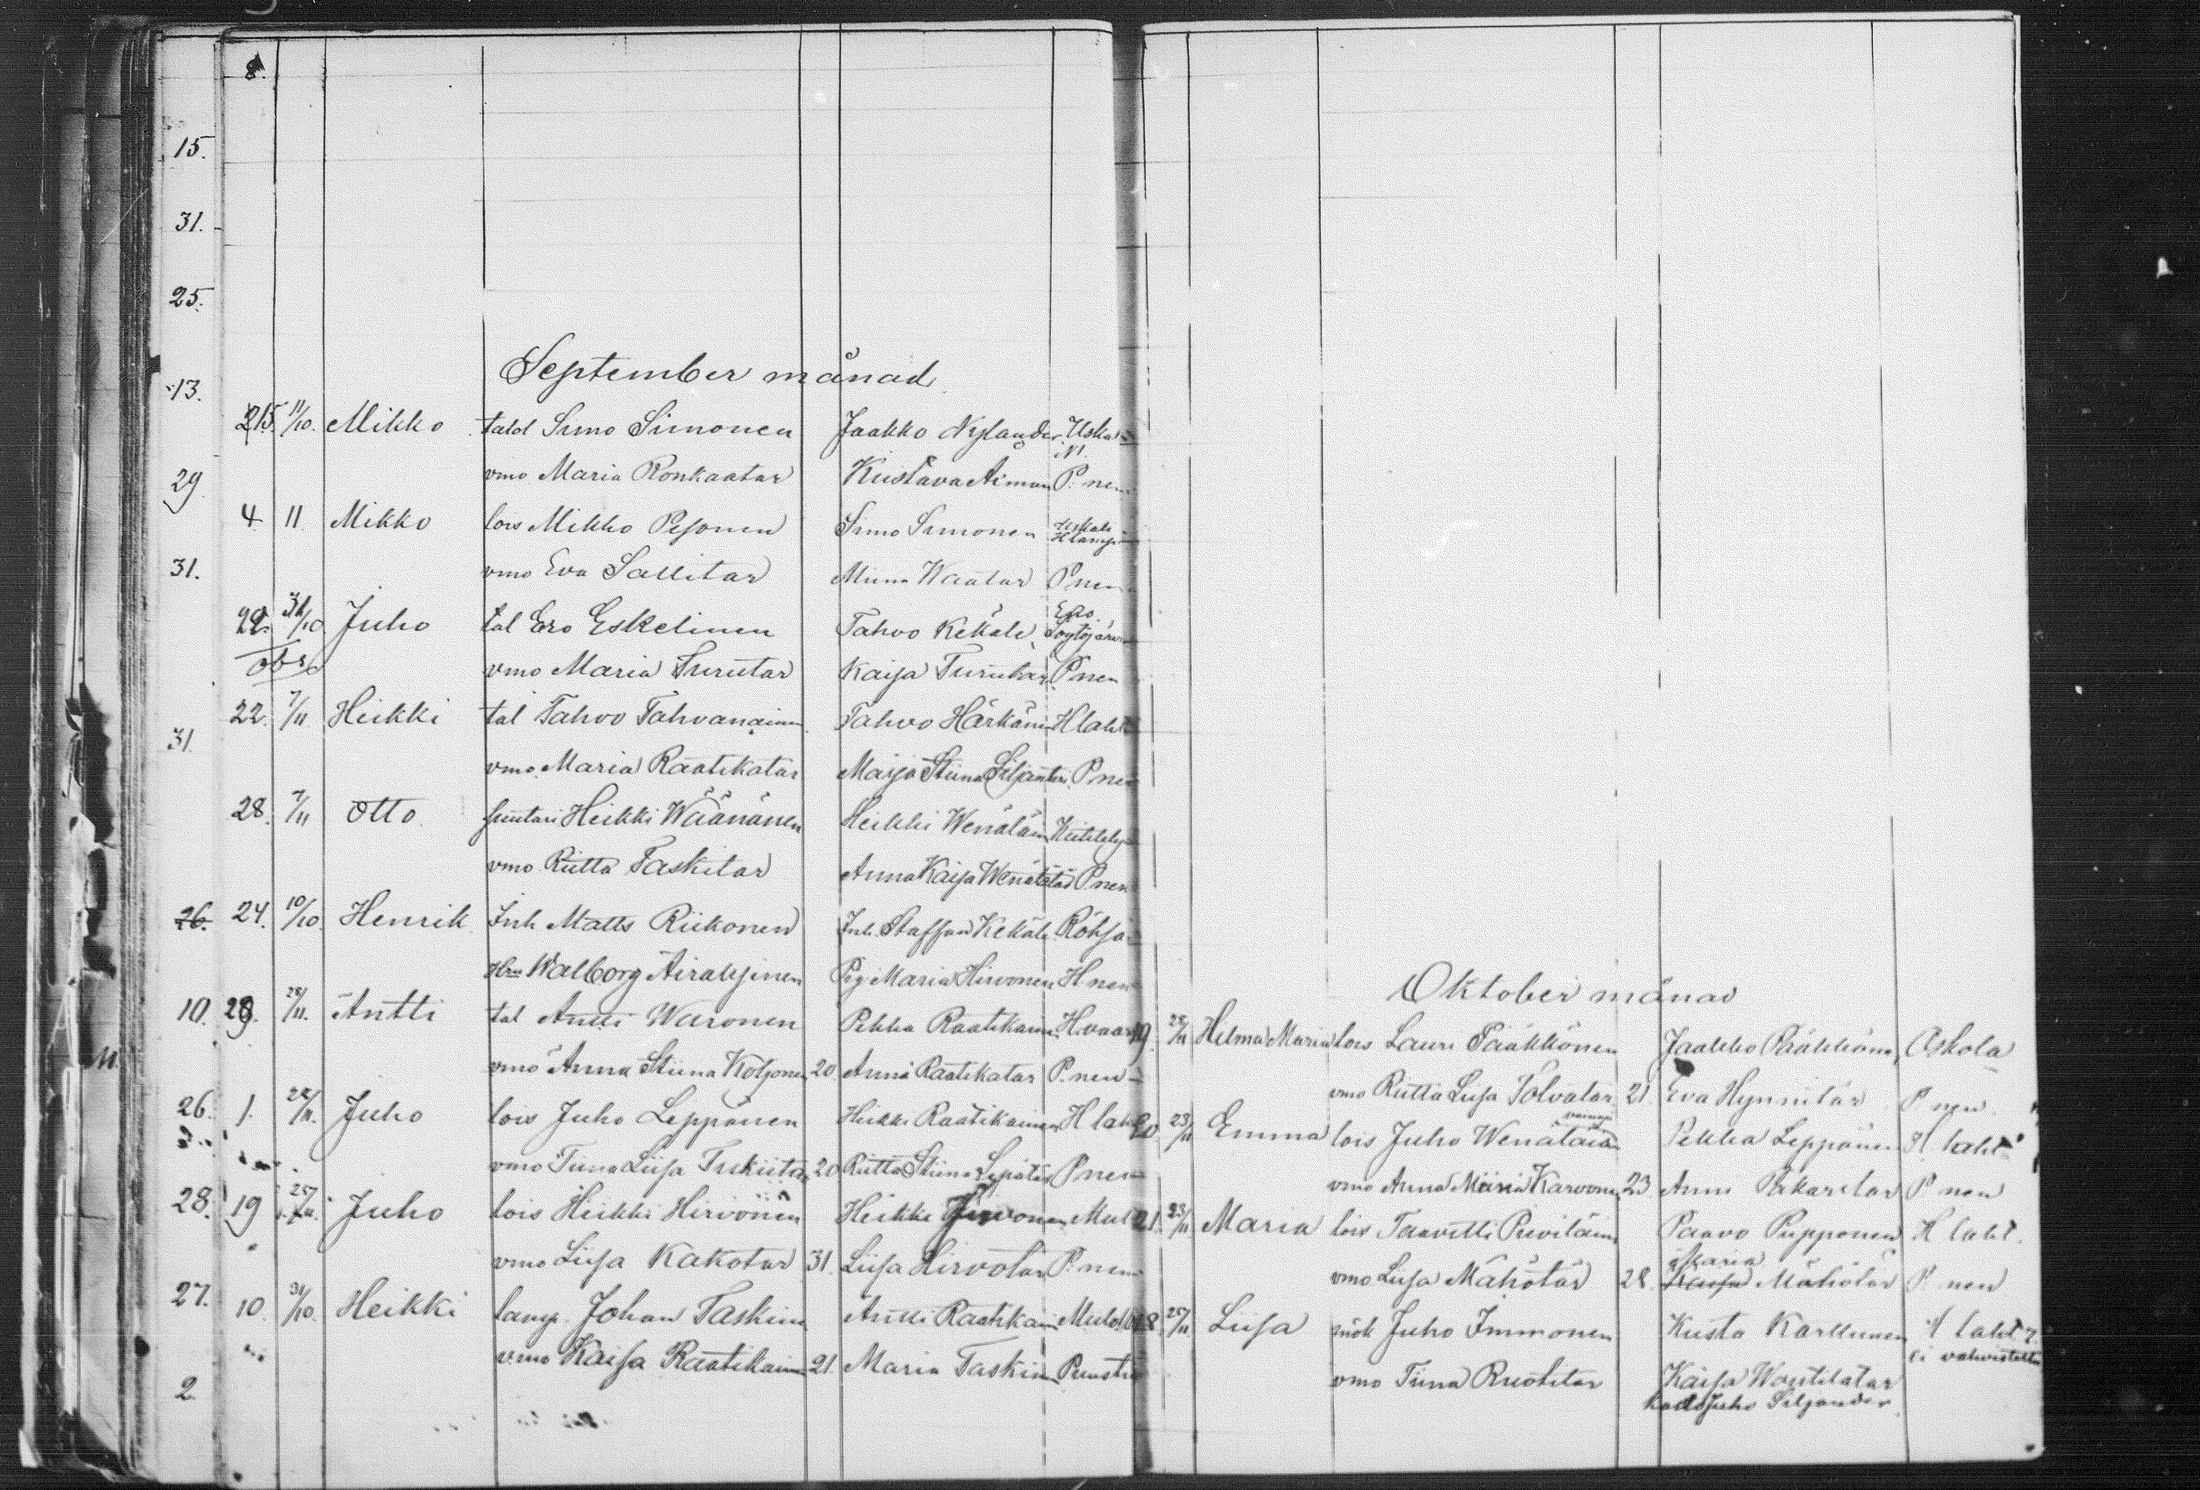 8.
15.
31.
25.
September månad
13.
215. 11/10. Mikko tal Simo Simonen Jaakko Nylander Uska
N.
29. vmo Maria Ronkaatar Kustava Aiman P. nen
4 11 Mikko lois Mikko Pesonen Simo Simonen Uskali
H lampi
31. vmo Eva Sallitar Miina Waatar P nen
31/10 Juho tal Ero Eskelinen Tahvo Kekäle Eno.
Löytöjärvi
obs vmo Maria Turutar Kaisa P nen
22. 7/11 Heikki tal Tahvo Tahvanainen Tahvo Härkönen H laht
31. vmo Maria Raatikatar Maija Stiina Siljander P nen
28. 7/11 Otto suutari Heikki Wäänänen Heikki Wenäläin
vmo Riitta Taskitar Anna Kaisa Wenätär P nen
26. 24. 10/10. Henrik Inh Matts Riikonen Inh. Staffan Kekäle Röksä
Hru Walborg Airaksinen Pig Maria Hirvonen H nen
Oktober månad
10. 29. 28/11. Antti tal Antti Waronen Pekka Raatikainen H vaara
vmo Anna Stiina Koljonen 20 Anna Raatikatar P. nen
26. 1. 28/11. Juho lois Juho Leppänen Heikki Raatikainen H laht
vmo Tiina Liisa 20 Riitta Stiina Lepätär P nen
28. 19 25/11. Juho lois Heikki Hirvonen Heikki Mul
vmo Liisa Kakotar 31. Liisa Hirvotar P. nen
27. 10. 31/10. Heikki lamp. Johan Taskin Antti Raatikain Mulo
vmo Kaisa Raatikainen 21 Maria Taskin Puusti
2.
19. 28/11 Helma Maria lois Lauri Pääkkönen Jaakko Pääkkönen Askola
vmo Riitta Liisa Polvatar 21 Eva Hynnitär P nen
20. 23/11 Emma lois Juho Wenäläin Pekka Leppänen H laht
vmo Anna Maria Karvonen 23 Anni Pakaritar P nen
21. 23/11 Maria lois Taavetti Puvilain Paavo Pupponen H laht.
Maria
vmo Liisa Mähötär 28. Mähötär P. nen
18. 25/11 Liisa mök Juho Immonen Kusta Karttunen H laht
ei vahvistettu
vmo Tiina Ruotitar Kaisa Wautilatar
Juho Siljander